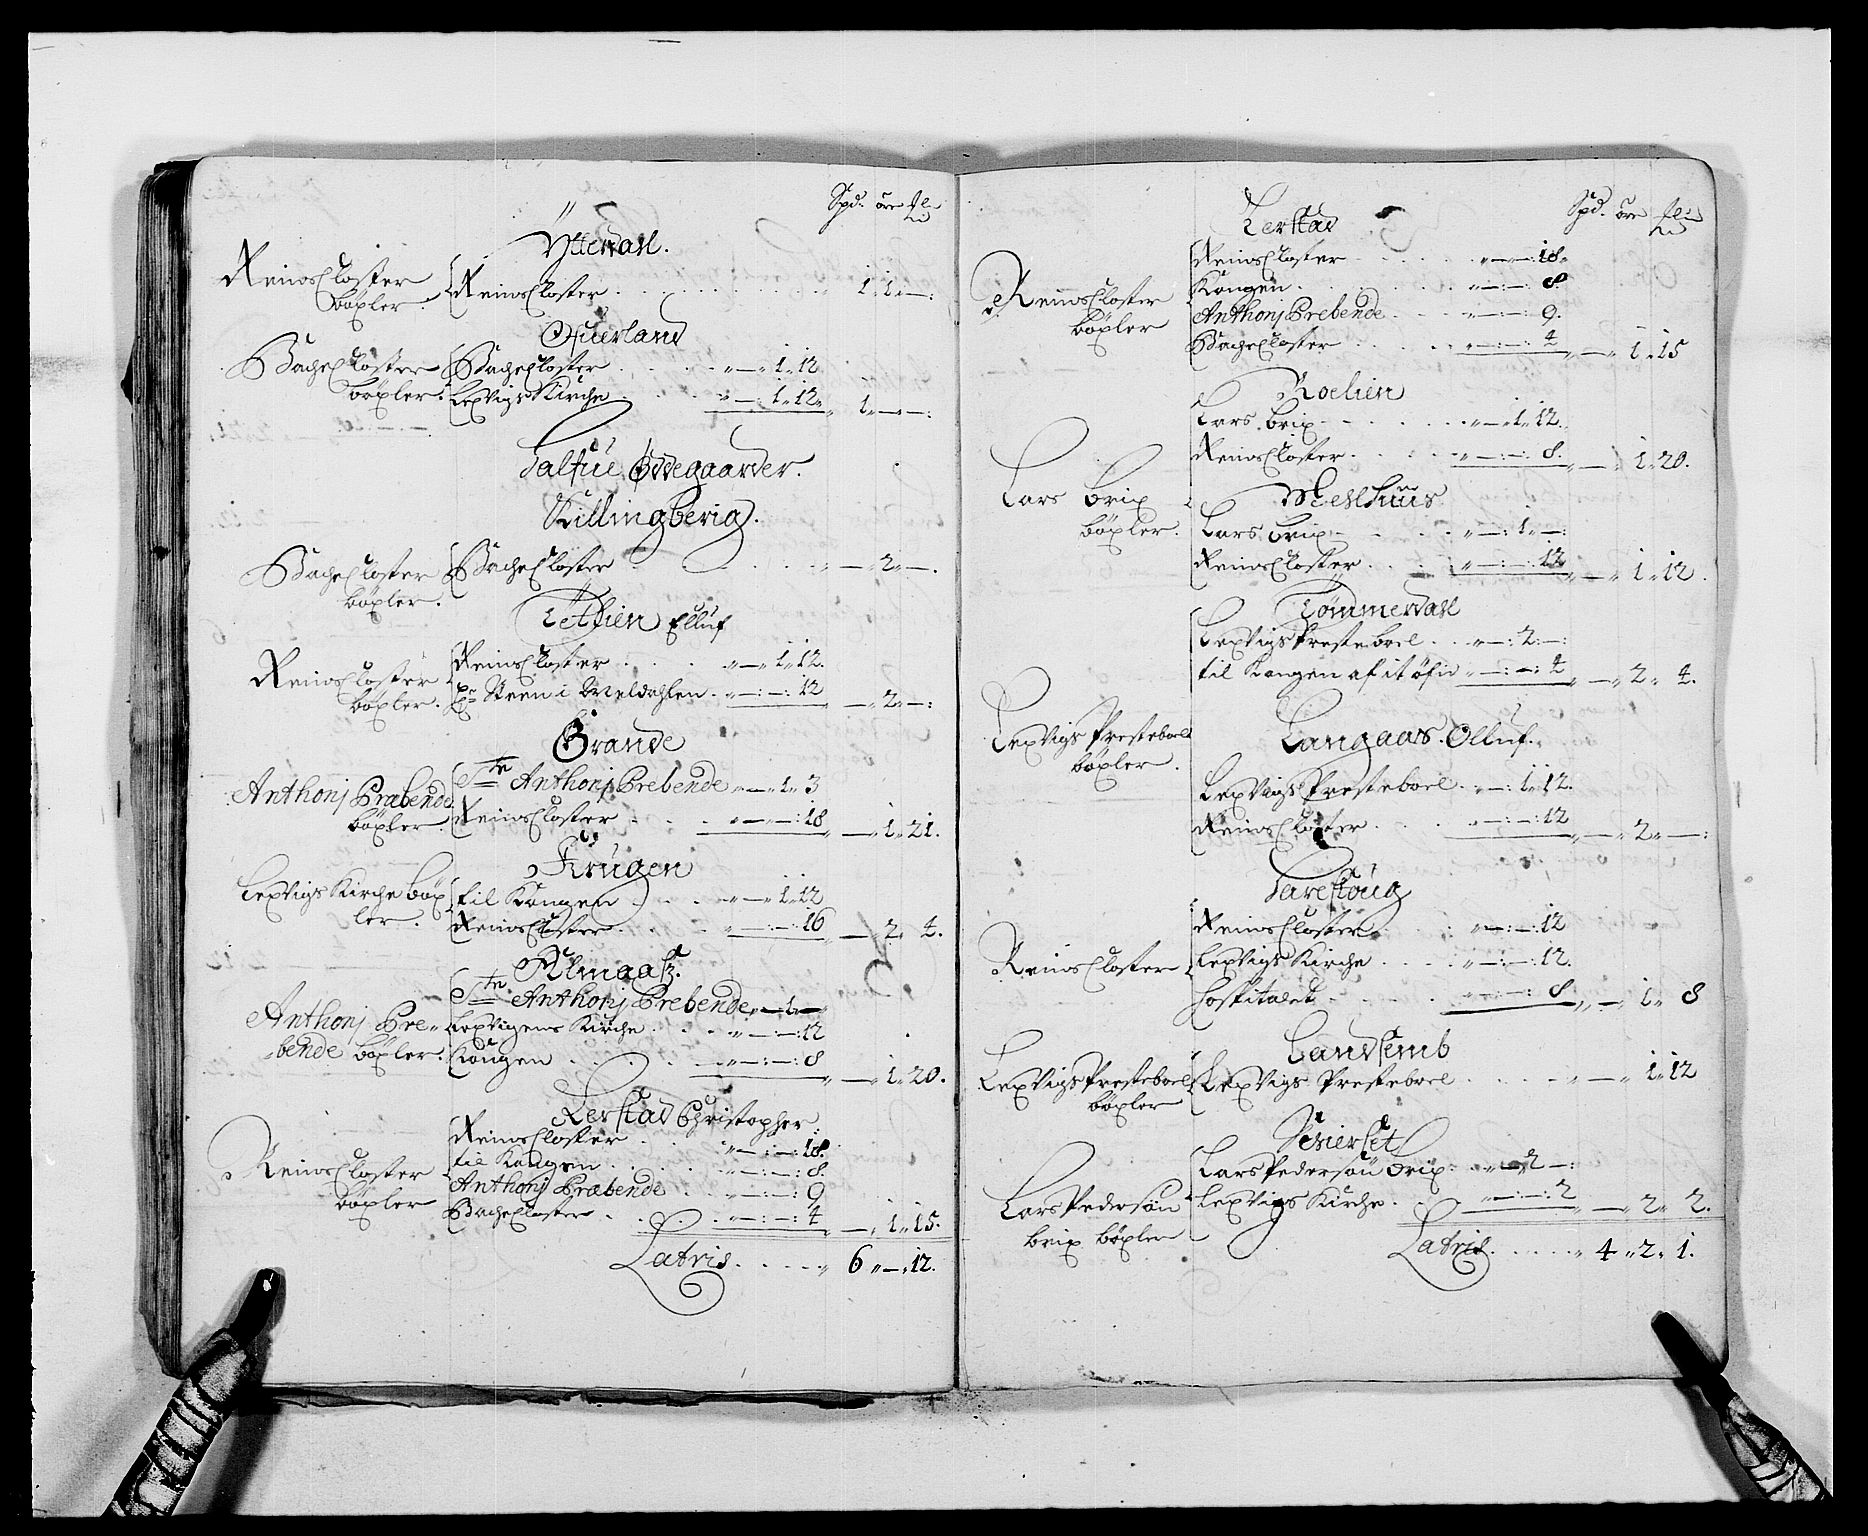 Spd. öre
Ytterdahl.
ReinsCloster
bøxler.
ReinsCloster . . . 1„1„—:
Øfuerland
BacheCloster
bøxler.
BacheCloster . . . „—„1„12
LexVigs Kirche . . „—:1„12„ 1„—„—:
Halfue Ødegaarder.
Killingberig.
BacheCloster
bøxler.
BacheCloster . . . „—„2„—.
Elluf
ReinsCloster
bøxler.
ReinsCloster . . . „—„1„12.
Steen i Meldahlen . „—:—:12 „—„2„—:
Grande
Anthonj Præbende
bøxler.
Ste Anthonj Prebende „—„1„3
ReinsCloster . . . „—„—:18 „—„1„21.
Krugen
LexVigs Kirche bøx
ler.
til Kongen . . . „—„1„12
ReinsCloster . . . „—:—:16 „—„2„4.
Almaas.
Anthonj Pre-
bende bøxler.
Ste Anthonj Prebende „—„1„—
LexVigens Kirche . . „—:—:12
Kongen . . . „—„—:8 „—„1„20.
Rerstad Christopher.
ReinsCloster
bøxler
ReinsCloster . . . „—:—:18.
til Kongen . . . „—:—:8.
Anthonj Præbende . . „—:—:9
BacheCloster . . . „—:—:4 „—„1„15.
Latris . . . . „ 6„—„12.
Spd. öre
Rerstad
ReinsCloster
bøxler
ReinsCloster . . . „—:—:18„
Kongen . . . „—:—:8
Anthonj Prebende . . „—:—:9.
BacheCloster . . . „—:—:4 „—„1„15
Roelien
Lars Brix
bøxler.
Lars Brix . . . „—„1„12.
ReinsCloster . . . „—:—:8. „—„1„20.
Melhuus
Lars Brix . . . „—:1„—:
ReinsCloster . . . „—:—:12 „—„1„12.
Tømmerdahl
LexVigs Presteboel
bøxler.
LexVigs Presteboel . . „—:2:—:
til Kongen af it øfn „—:—:4 „—„2„4.
Langaas. Olluf.
LexVigs Presteboel . „—:1„12.
ReinsCloster . . . „—:—:12 „—„2„—:
Harestoug
ReinsCloster
ReinsCloster . . . „—:—:12
LexVigs Kirche . . . „—:—:12.
Hospitalet . . . „—:—:8 „—„1„8
Landsemb
LexVigs Presteboel
bøxler
LexVigs Presteboel . . . „—„1„12
Lars Pedersøn
brix bøxler
Lars Pedersøn brix . „—„2„—:
LexVigs Kirche . . „—:—:2 „—„2„2.
Latris . . . . „ 4„2„1.